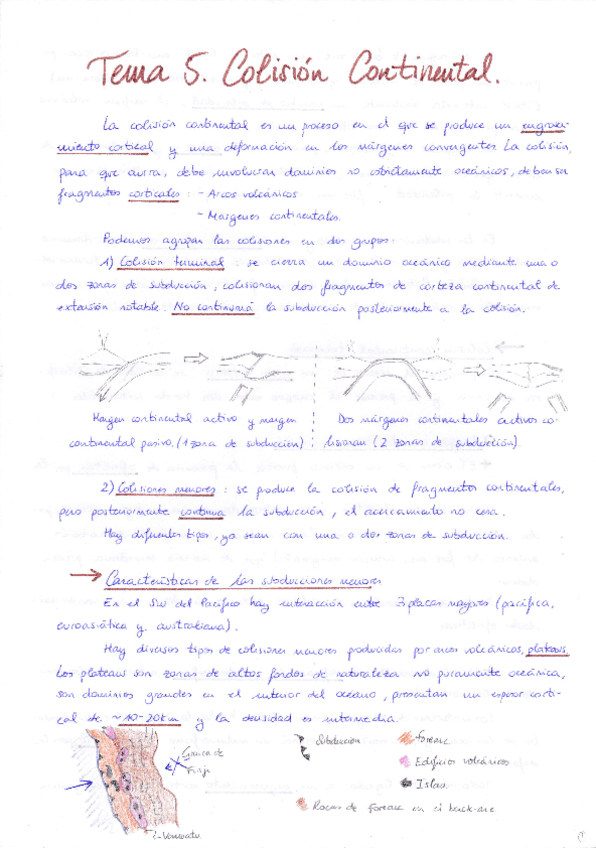 Tema 5. Colisión Continental.
La colisión continental es un proceso en el que se produce un engrosa-
miento cortical y una deformación en los márgenes convergentes. La colisión,
para que ocurra, debe involucrar dominios no estrictamente oceánicos, deben ser
fragmentos corticales : - Arcos volcánicos
- Margenes continentales.
Podemos agrupar las colisiones en dos grupos.
1) Colisión terminal : se cierra un dominio oceánico mediante una o
dos zonas de subducción, colisionan dos fragmentos de corteza continental de
extensión notable. No continuará la subducción posteriormente a la colisión.
Margen continental activo y margen
continental pasivo. (1 zona de subducción)
Dos márgenes continentales activos co-
lisionan (2 zonas de subducción)
2) Colisiones menores : se produce la colisión de fragmentos continentales,
pero posteriormente continua la subducción, el acercamiento no cesa.
Hay diferentes tipos, ya sean con una o dos zonas de subducción.
→ Características de las subducciones menores
En el SW del Pacífico hay interacción entre 3 placas mayores (pacífica,
euroasiática y australiana).
Hay diversos tipos de colisiones menores producidas por arcos volcánicos, plateaus.
Los plateau son zonas de altos fondos de naturaleza no puramente oceánica,
son dominios grandes en el interior del océano, presentan un espesor corti-
cal de ~10-20km y la densidad es intermedia.
Cuenca de
Fiji
I. Vanuatu
Subducción
Forearc
Edificios volcánicos
Islas
Rocas de forearc en el back-arc